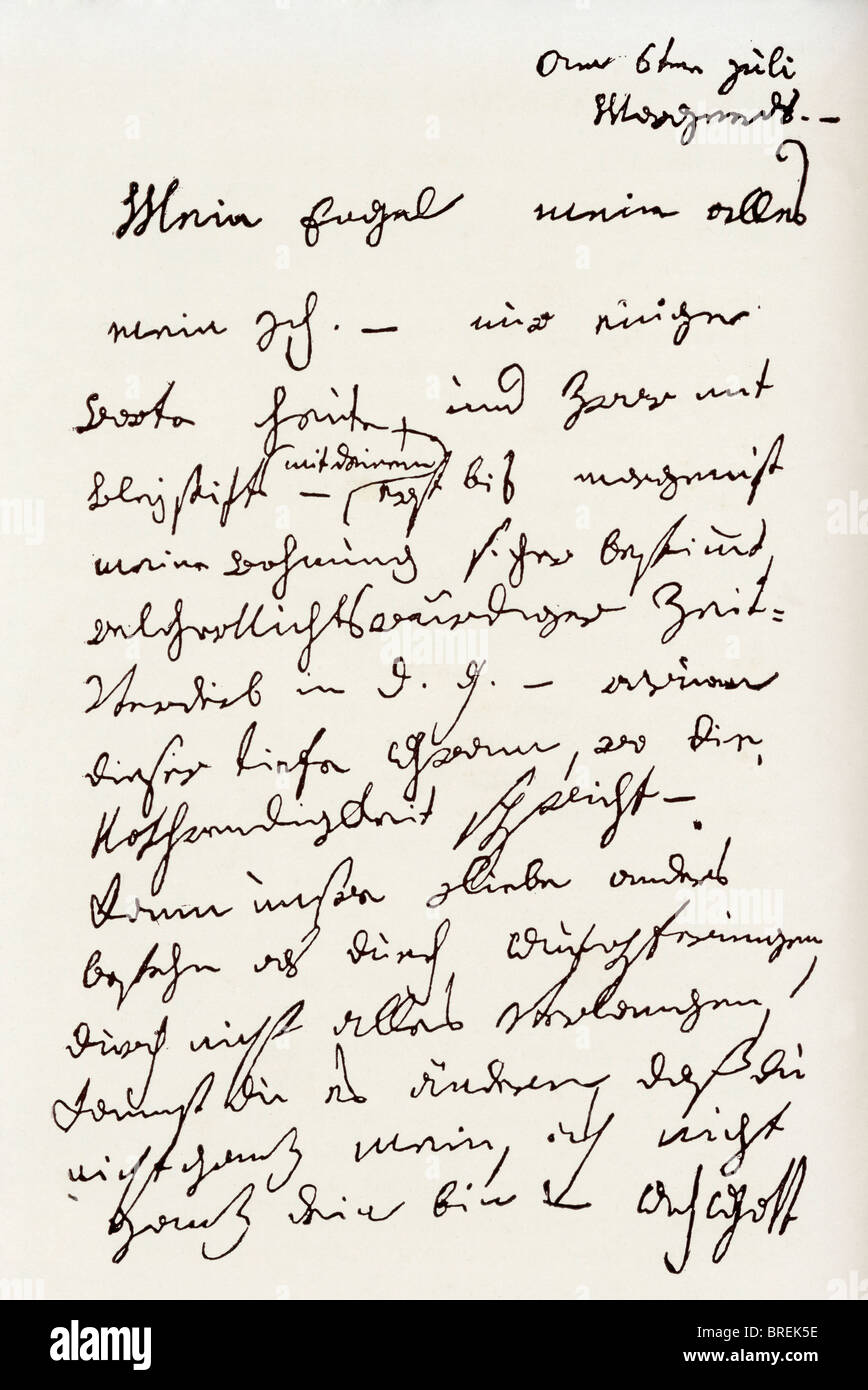 am 6ten Juli
Morgends. —
Mein Engel mein alles
mein Ich. — nur einige
Worte heute, und zwar mit
Bleystift — mit deinem erst bis morgen ist
meine Wohnung sicher bestimmt,
welcher Nichtswürdiger Zeit=
Verderb in d. g. — warum
dieser tiefe Gram, wo die
Nothwendigkeit spricht —
Kann unsre Liebe anders
bestehn als durch Aufopferungen,
durch nicht alles Verlangen,
kannst du es ändern, daß du
nicht ganz mein, ich nicht
ganz dein bin — Ach Gott
alamy
Image ID: BREK5E
www.alamy.com